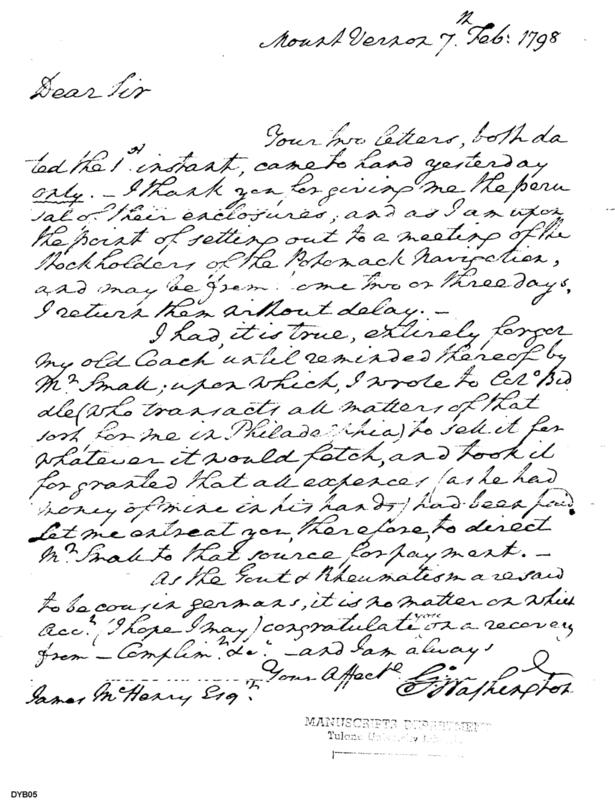 Mount Vernon 7th Feb: 1798
Dear Sir
Your two letters, both da
ted the 1st instant, came to hand yesterday
only. – I thank you for giving me the peru
sal of their enclosures; and as I am upon
the point of setting out to a meeting of the
Stockholders of the Potomack Navigation,
and may be from home two or three days,
I return them without delay. –
I had, it is true, entirely forgot
my old Coach, until reminded thereof by
Mr. Small; upon which, I wrote to Colo. Bid
dle (who transacts all matters of that
sort for me in Philadelphia) to sell it for
whatever it would fetch, and took it
for granted that all expences (as he had
money of mine in his hands) had been paid.
Let me entreat you, therefore, to direct
Mr. Small to that source for payment. –
As the Gout & Rheumatism are said
to be cousin germans, it is no matter on which
acct. (I hope I may) congratulate you on a recovery
from – Complimts. &c. – and I am always
Your Affecte.
James McHenry Esqr. Go: Washington
MANUSCRIPTS DEPARTMENT
Tulane University
DYB05